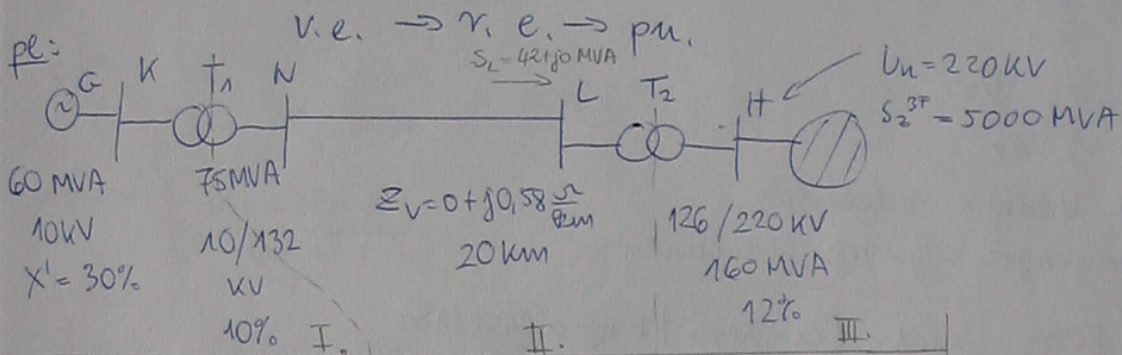 v.e. → r. e. → pu.
pl:
S_L=42+j0 MVA
G K T1 N L T2 H
U_n=220kV
S_z^3F=5000 MVA
60 MVA
10kV
X'=30%
75MVA
10/132
kV
10%
Z_V=0+j0,58 Ω/km
20km
126/220 kV
160 MVA
12%
I. II. III.